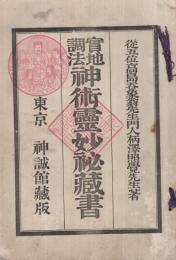 從五位宮岡宿央集翁先生門人柄澤照覺先生著
實地調法
神術靈妙祕藏書
東京 神誠館藏版